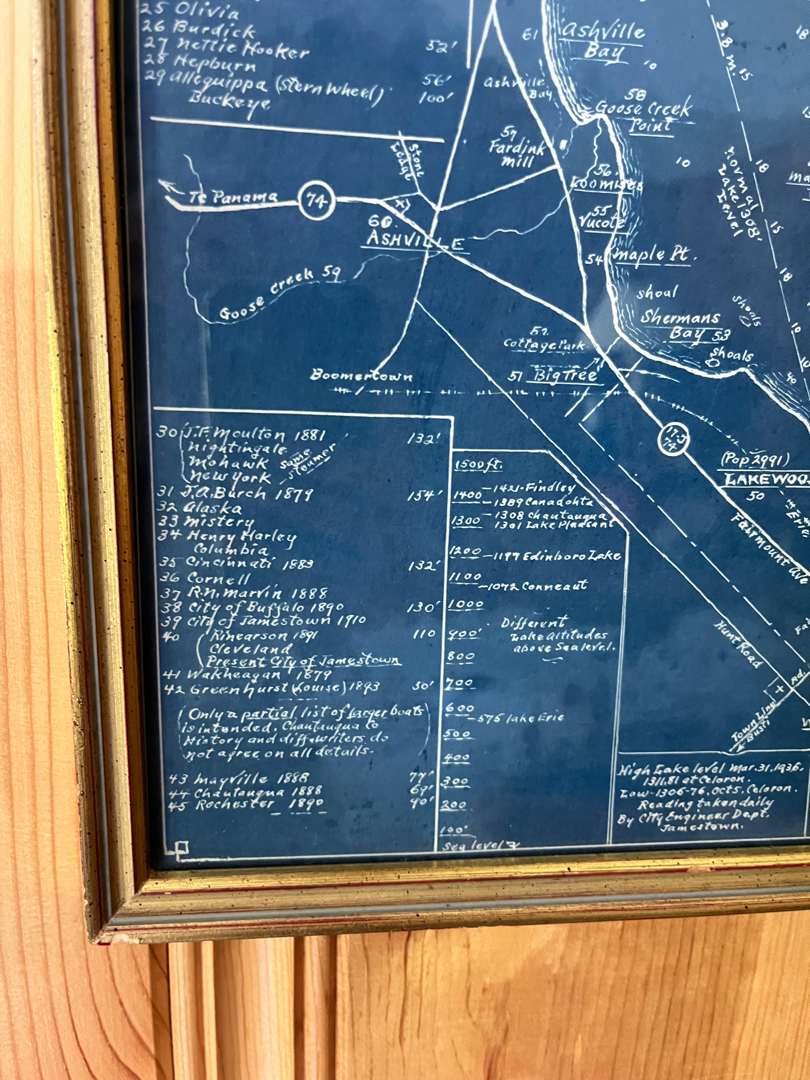 25 Olivia
26 Burdick
27 Nettie Hooker 52'
28 Hepburn
29 Allequippa (Stern Wheel) 56'
Buckeye 100'
61 Ashville
Bay
Ashville
Bay
58
Goose Creek
Point
57
Fardink
Mill
56
Loomises
55
Vucote
54 Maple Pt.
3.8 m.
15
18
10
10
Normal
Lake 1308'
Level
18
15
18
10
Stone
Ledge
To Panama 74
60
ASHVILLE
Goose Creek 59
shoal
Shermans
Bay 53
Shoals
Shoals
52
Cottage Park
51 Big Tree
Boomertown
(Pop 2991)
LAKEWOO
50
Erie
Fairmount Ave
Hunt Road
Town Line
Busti
Rd.
30 J.F. Moulton 1881 132'
Nightingale
Mohawk
New York
Same
Steamer
31 J.A. Burch 1879 154'
32 Alaska
33 Mistery
34 Henry Harley
Columbia
35 Cincinnati 1883 132'
36 Cornell
37 R.N. Marvin 1888
38 City of Buffalo 1890 130'
39 City of Jamestown 1910
40 Rinearson 1891 110
Cleveland
Present City of Jamestown
41 Wakheagan 1879
42 Greenhurst (Louise) 1893 50'
(Only a partial list of larger boats
is intended. Chautauqua to
History and diff. writers do
not agree on all details.
43 Mayville 1888 77'
44 Chautauqua 1888 69'
45 Rochester 1890 90'
1500 ft.
1421-Findley
1400 - 1389 Canadohta
1308 Chautauqua
1300 1301 Lake Pleasant
1200 - 1197 Edinboro Lake
1100
1072 Conneaut
1000
Different
Lake Altitudes
above Sea level.
900'
800
700
600
575 Lake Erie
500
400
300
200
100'
Sea level
High Lake level Mar. 31, 1936.
1311.81 at Celoron.
Low-1306-76, Oct 5, Celoron.
Reading taken daily
By City Engineer Dept.
Jamestown.